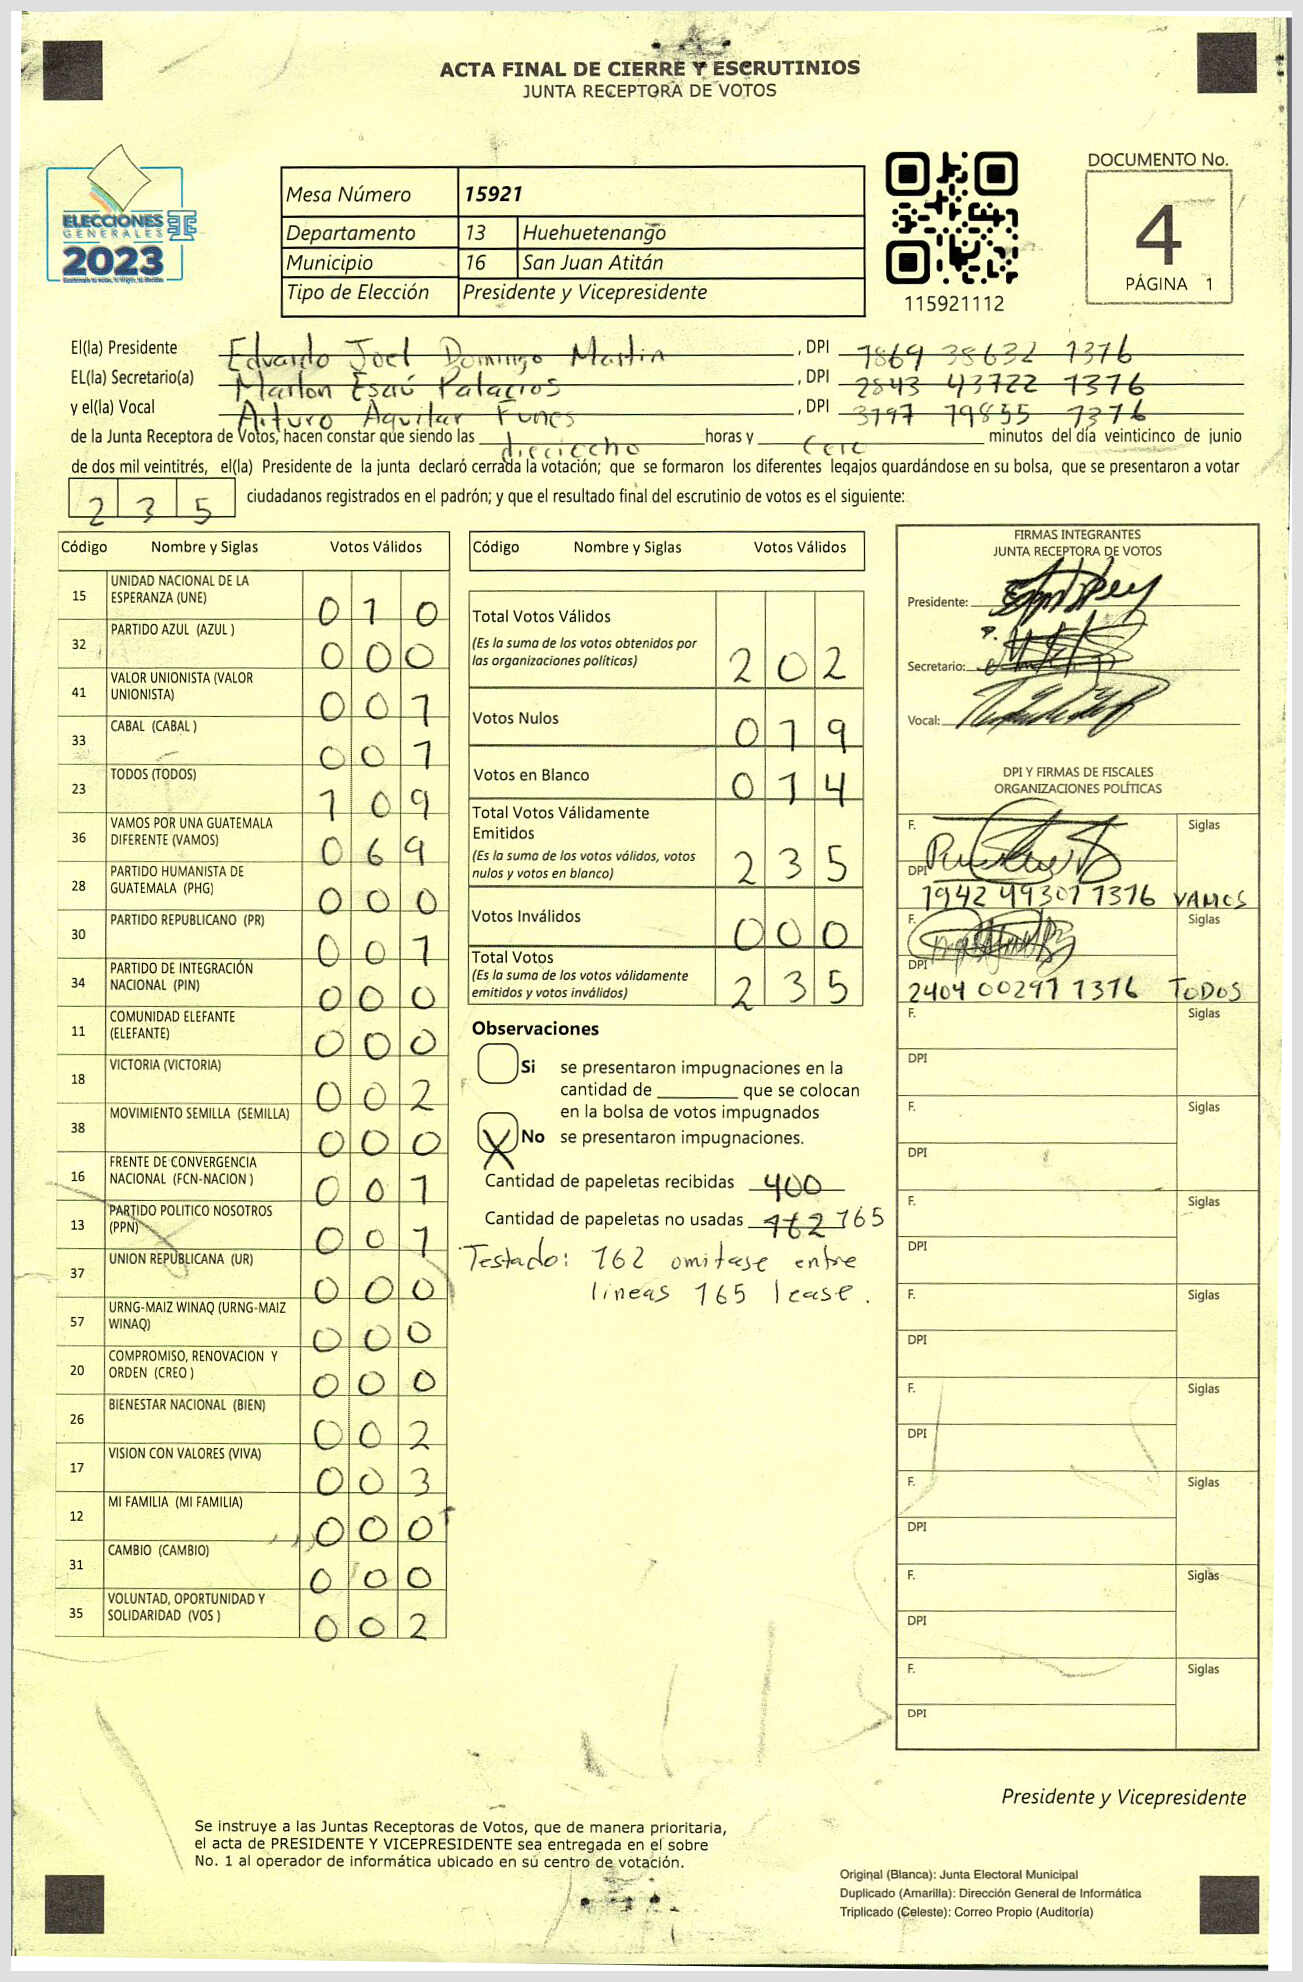 ACTA FINAL DE CIERRE Y ESCRUTINIOS
JUNTA RECEPTORA DE VOTOS
ELECCIONES
GENERALES
2023
Mesa Número 15921
Departamento 13 Huehuetenango
Municipio 16 San Juan Atitán
Tipo de Elección Presidente y Vicepresidente
115921112
DOCUMENTO No.
4
PÁGINA 1
El(la) Presidente Eduardo Joel Domingo Martin, DPI 1869 38632 1376
EL(la) Secretario(a) Marlon Esaú Palacios, DPI 2843 43722 1376
y el(la) Vocal Arturo Aguilar Funes, DPI 3197 79855 1376
de la Junta Receptora de Votos, hacen constar que siendo las dieciocho horas y cero minutos del día veinticinco de junio
de dos mil veintitrés, el(la) Presidente de la junta declaró cerrada la votación; que se formaron los diferentes legajos guardándose en su bolsa, que se presentaron a votar
235 ciudadanos registrados en el padrón; y que el resultado final del escrutinio de votos es el siguiente:
Código Nombre y Siglas Votos Válidos
15 UNIDAD NACIONAL DE LA ESPERANZA (UNE) 010
32 PARTIDO AZUL (AZUL ) 000
41 VALOR UNIONISTA (VALOR UNIONISTA) 001
33 CABAL (CABAL ) 001
23 TODOS (TODOS) 109
36 VAMOS POR UNA GUATEMALA DIFERENTE (VAMOS) 069
28 PARTIDO HUMANISTA DE GUATEMALA (PHG) 000
30 PARTIDO REPUBLICANO (PR) 001
34 PARTIDO DE INTEGRACIÓN NACIONAL (PIN) 000
11 COMUNIDAD ELEFANTE (ELEFANTE) 000
18 VICTORIA (VICTORIA) 002
38 MOVIMIENTO SEMILLA (SEMILLA) 000
16 FRENTE DE CONVERGENCIA NACIONAL (FCN-NACION ) 001
13 PARTIDO POLITICO NOSOTROS (PPN) 001
37 UNION REPUBLICANA (UR) 000
57 URNG-MAIZ WINAQ (URNG-MAIZ WINAQ) 000
20 COMPROMISO, RENOVACION Y ORDEN (CREO ) 000
26 BIENESTAR NACIONAL (BIEN) 002
17 VISION CON VALORES (VIVA) 003
12 MI FAMILIA (MI FAMILIA) 000
31 CAMBIO (CAMBIO) 000
35 VOLUNTAD, OPORTUNIDAD Y SOLIDARIDAD (VOS ) 002
Código Nombre y Siglas Votos Válidos
Total Votos Válidos
(Es la suma de los votos obtenidos por
las organizaciones políticas) 202
Votos Nulos 019
Votos en Blanco 014
Total Votos Válidamente
Emitidos
(Es la suma de los votos válidos, votos
nulos y votos en blanco) 235
Votos Inválidos 000
Total Votos
(Es la suma de los votos válidamente
emitidos y votos inválidos) 235
Observaciones
Si se presentaron impugnaciones en la
cantidad de ________ que se colocan
en la bolsa de votos impugnados
X No se presentaron impugnaciones.
Cantidad de papeletas recibidas 400
Cantidad de papeletas no usadas 162 165
Testado: 162 omitase entre
lineas 165 lease.
FIRMAS INTEGRANTES
JUNTA RECEPTORA DE VOTOS
Presidente:
Secretario:
Vocal:
DPI Y FIRMAS DE FISCALES
ORGANIZACIONES POLÍTICAS
F. Siglas
DPI 1942 49307 1316 VAMOS
F. Siglas
DPI 2404 00297 1316 TODOS
F. Siglas
DPI
F. Siglas
DPI
F. Siglas
DPI
F. Siglas
DPI
F. Siglas
DPI
F. Siglas
DPI
F. Siglas
DPI
F. Siglas
DPI
Presidente y Vicepresidente
Se instruye a las Juntas Receptoras de Votos, que de manera prioritaria,
el acta de PRESIDENTE Y VICEPRESIDENTE sea entregada en el sobre
No. 1 al operador de informática ubicado en su centro de votación.
Original (Blanca): Junta Electoral Municipal
Duplicado (Amarilla): Dirección General de Informática
Triplicado (Celeste): Correo Propio (Auditoría)